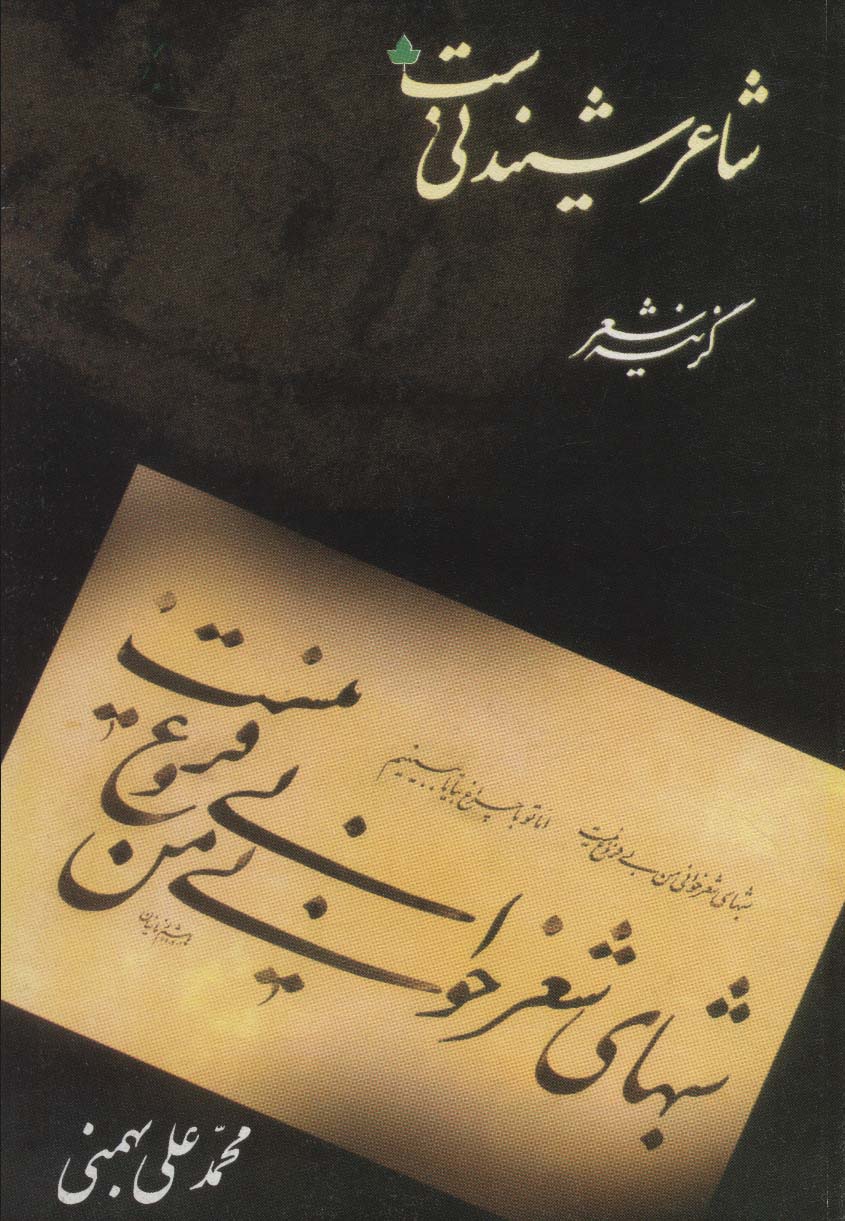 شاعر شنیدنی ست
گزینه شعر
شبهای شعرخوانی من بی فروغ نیست
اما تو با چراغ بیا تا ببینیم
شبهای شعرخوانی من بی فروغ نیست
محمّد علی بهمنی